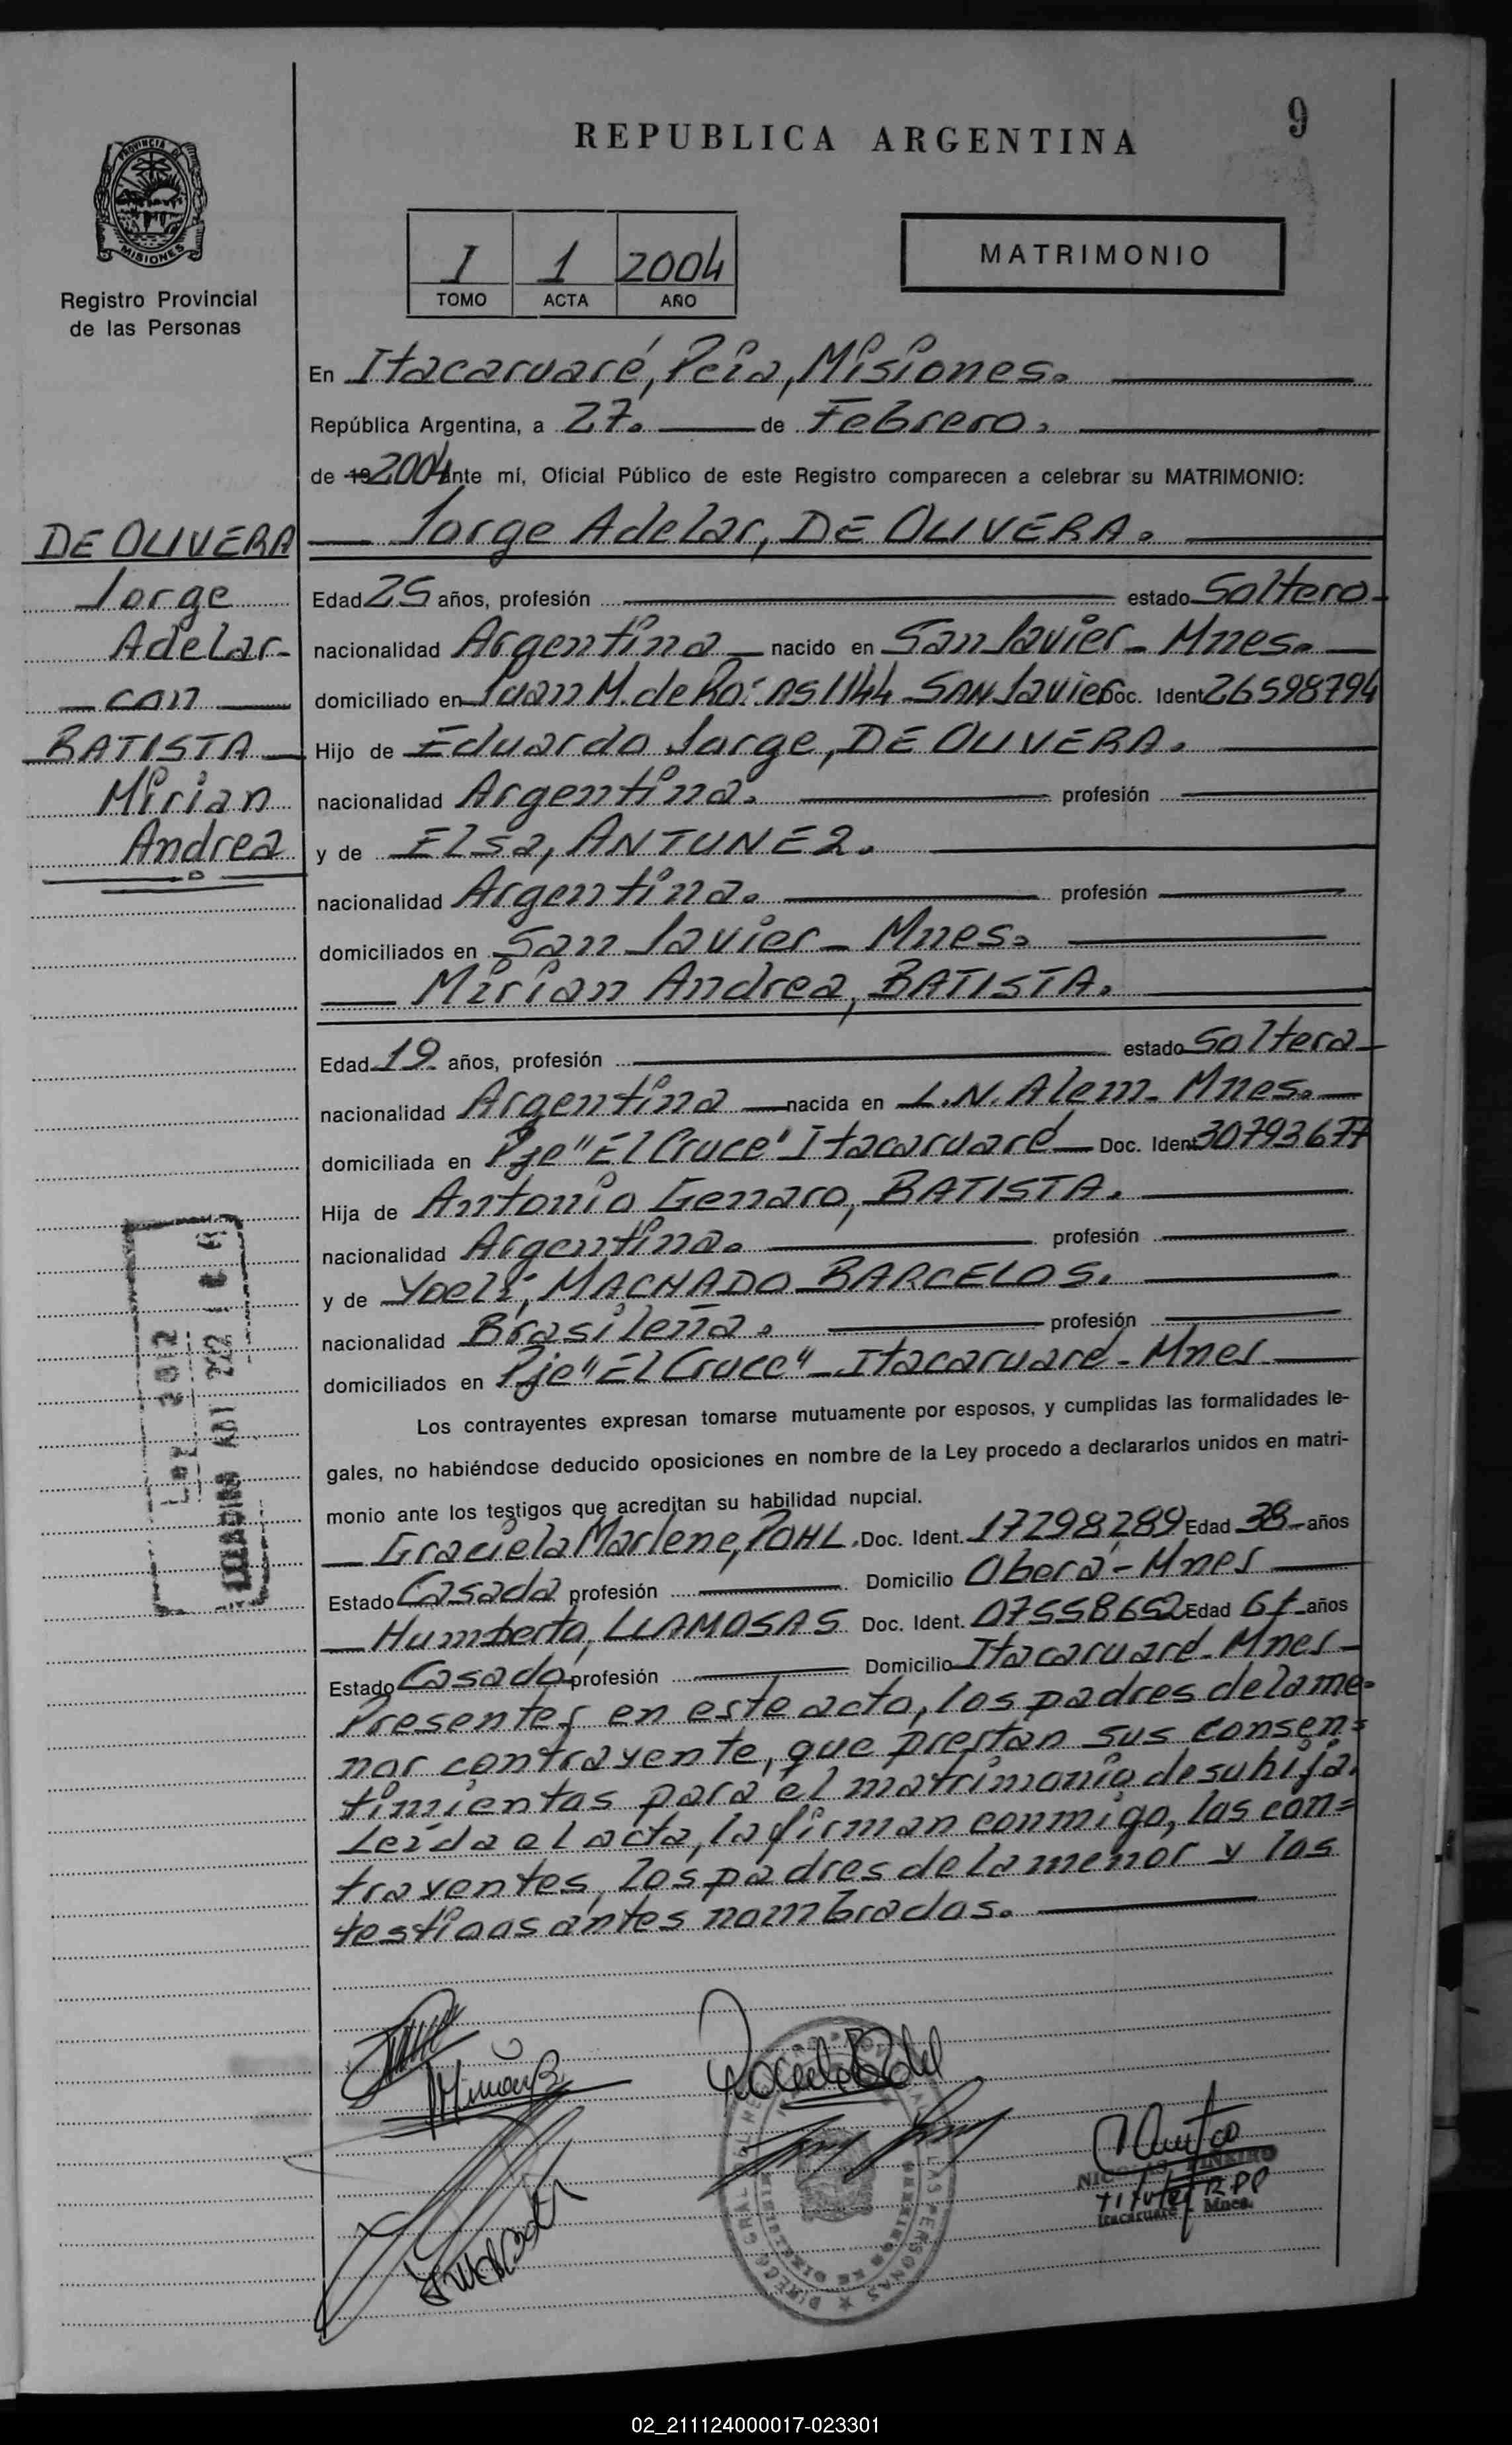 9
REPUBLICA ARGENTINA
PROVINCIA DE
MISIONES
Registro Provincial
de las Personas
I 1 2004
TOMO ACTA AÑO
MATRIMONIO
En Itacaruaré, Pcia, Misiones.
República Argentina, a 27. de Febrero.
de 19 2004 ante mí, Oficial Público de este Registro comparecen a celebrar su MATRIMONIO:
DE OLIVERA
Jorge
Adelar
con
BATISTA
Mirian
Andrea
Jorge Adelar, DE OLIVERA.
Edad 25 años, profesión estado Soltero
nacionalidad Argentina nacido en San Javier - Mnes.
domiciliado en Juan M. de Ro: as 1144 San Javier Doc. Ident 26598794
Hijo de Eduardo Jorge, DE OLIVERA.
nacionalidad Argentina. profesión
y de Elsa, ANTUNEZ.
nacionalidad Argentina. profesión
domiciliados en San Javier - Mnes.
Mirian Andrea, BATISTA.
Edad 19 años, profesión estado Soltera
nacionalidad Argentina nacida en L.N. Alem - Mnes.
domiciliada en Pje "El Cruce" Itacaruaré Doc. Ident 30793677
Hija de Antonio Genaro, BATISTA.
nacionalidad Argentina. profesión
y de Yoeli, MACHADO BARCELOS.
nacionalidad Brasileña. profesión
domiciliados en Pje "El Cruce" - Itacaruaré - Mnes
Los contrayentes expresan tomarse mutuamente por esposos, y cumplidas las formalidades le-
gales, no habiéndose deducido oposiciones en nombre de la Ley procedo a declararlos unidos en matri-
monio ante los testigos que acreditan su habilidad nupcial.
Graciela Marlene, POHL. Doc. Ident. 17298289 Edad 38 años
Estado Casada profesión Domicilio Oberá - Mnes
Humberto, LLAMOSAS Doc. Ident. 07558652 Edad años
Estado Casado profesión Domicilio Itacaruaré - Mnes
Presentes en este acto, los padres de la me-
nor contrayente, que prestan sus consen-
timientos para el matrimonio de su hija.
Leída el acta, la firman conmigo, los con-
trayentes, los padres de la menor y los
testigos antes nombrados.
Mirian B.
Titular RPP
Itacaruaré - Mnes.
02_211124000017-023301